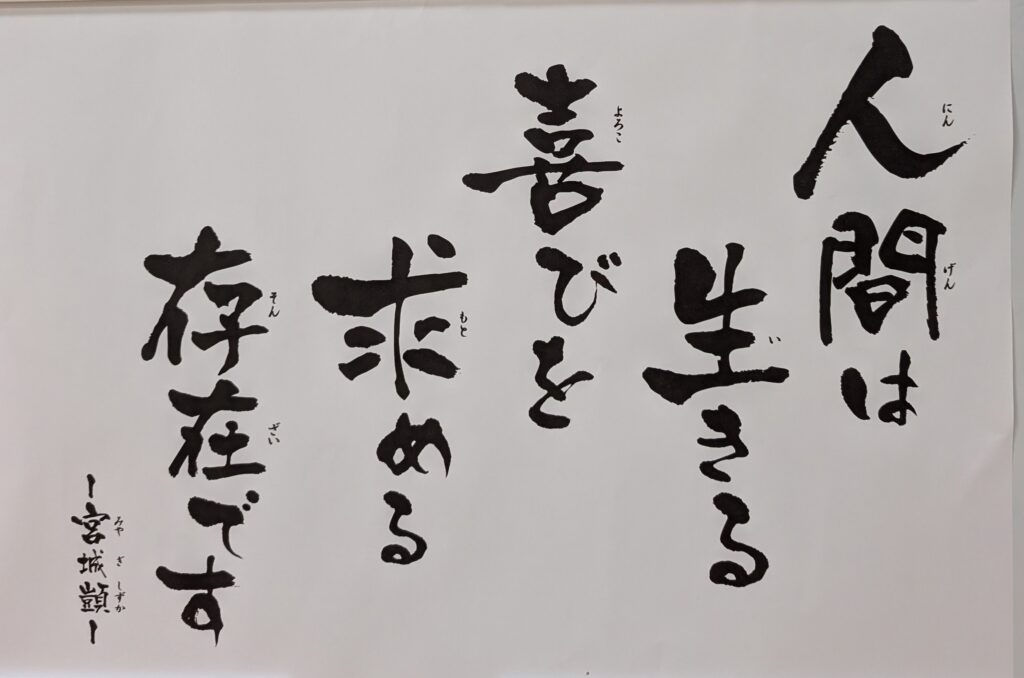 人間は
にんげん
生きる
い
喜びを
よろこ
求める
もと
存在です
そんざい
ー宮城顗ー
みやぎしずか